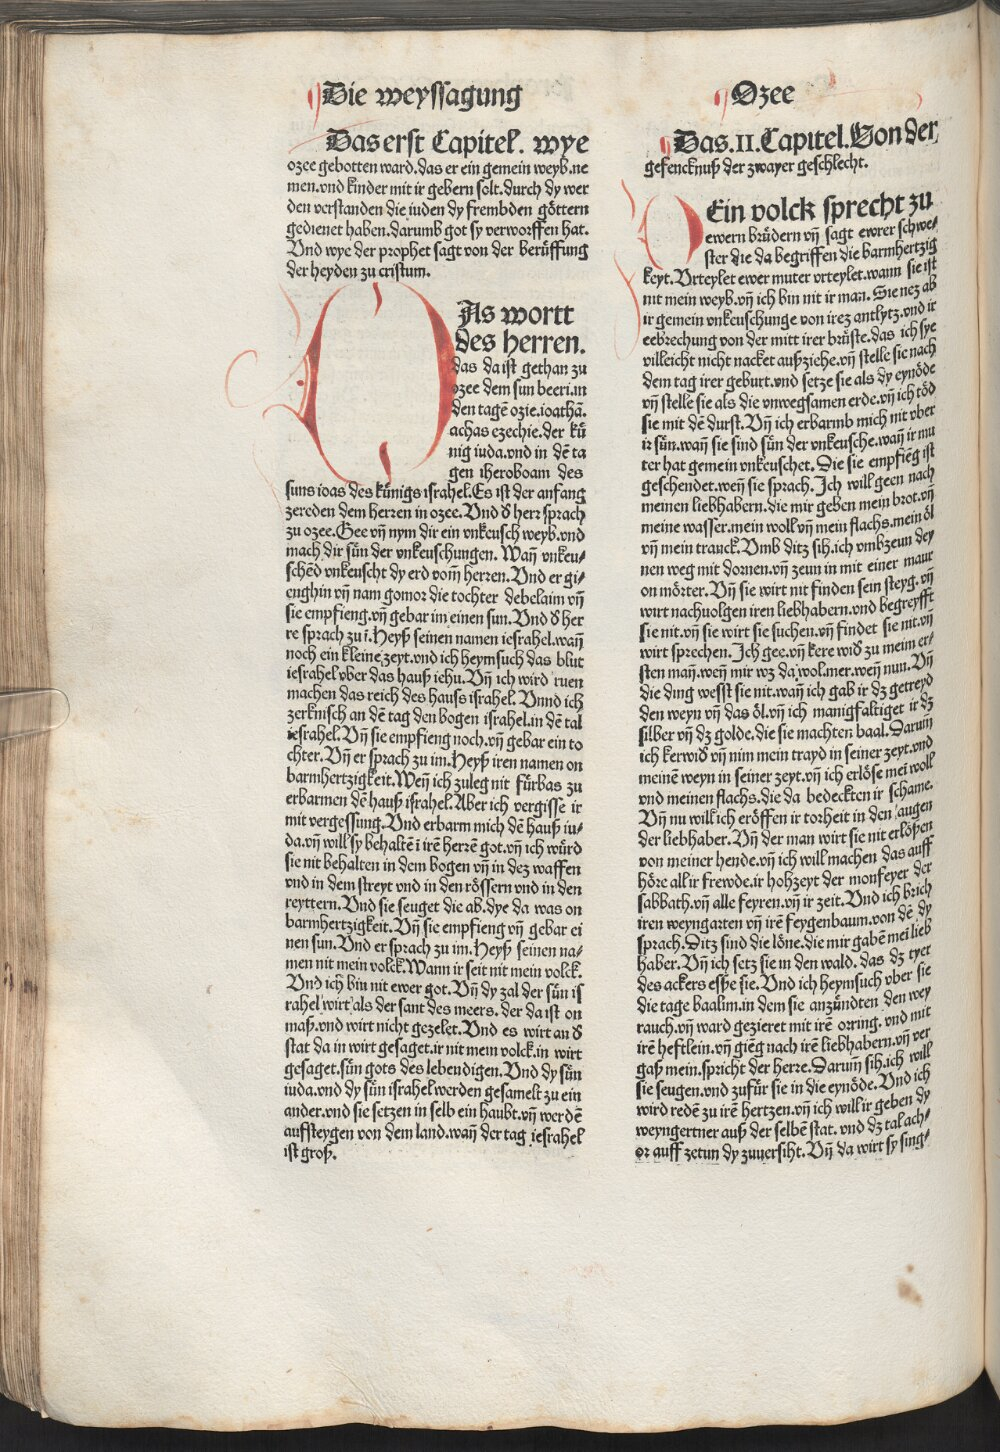 Die weyssagung
Das erst Capitel. wye
ozee gebotten ward.das er ein gemein weyb.ne
men.vnd kinder mit ir gebern solt.durch dy wer
den verstanden die iuden dy frembden göttern
gedienet haben.darumb got sy verworffen hat.
Vnd wye der prophet sagt von der berüffung
der heyden zu cristum.
As wortt
des herren.
das da ist gethan zu
ozee dem sun beeri.in
den tagē ozie.ioathā.
achas ezechie.der kü
nig iuda.vnd in dē ta
gen iheroboam des
suns ioas des künigs israhel.Es ist der anfang
zereden dem herren in ozee.Vnd d̕ herr sprach
zu ozee.Gee vn̄ nym dir ein vnkeusch weyb.vnd
mach dir sün der vnkeuschungen. Wan̄ vnkeu⸗
schēd vnkeuscht dy erd vom̄ herren.Vnd er gi⸗
enghin vn̄ nam gomor die tochter debelaim vn̄
sie empfieng.vn̄ gebar im einen sun.Vnd d̕ her
re sprach zu ī.Heyß seinen namen iesrahel.wan̄
noch ein kleine zeyt.vnd ich heymsuch das blut
iesrahel vber das hauß iehu.Vn̄ ich wird ruen
machen das reich des hauss israhel. Vnnd ich
zerknisch an dē tag den bogen israhel.in dē tal
iesrahel.Vn̄ sie empfieng noch.vn̄ gebar ein to
chter.Vn̄ er sprach zu im.Heyß iren namen on
barmhertzigkeit.Wen̄ ich zuleg nit fürbas zu
erbarmen dē hauß israhel.Aber ich vergisse ir
mit vergessung.Vnd erbarm mich dē hauß iu⸗
da.vn̄ will sy behaltē ī irē herrē got.vn̄ ich würd
sie nit behalten in dem bogen vn̄ in dez waffen
vnd in dem streyt vnd in den rössern vnd in den
reyttern.Vnd sie seuget die ab.dye da was on
barmhertzigkeit.Vn̄ sie empfieng vn̄ gebar ei
nen sun.Vnd er sprach zu im.Heyß seinen na⸗
men nit mein volck.Wann ir seit nit mein volck.
Vnd ich bin nit ewer got.Vn̄ dy zal der sün is
rahel wirt als der sant des meers. der da ist on
maß.vnd wirt nicht gezelet.Vnd es wirt an d̕
stat da in wirt gesaget.ir nit mein volck.in wirt
gesaget.sün gots des lebendigen.Vnd dy sün
iuda.vnd dy sün israhel werden gesamelt zu ein
ander.vnd sie setzen in selb ein haubt.vn̄ werdē
aufsteygen von dem land.wan̄ der tag iesrahel
ist groß.
Ozee
Das.II.Capitel.Von der
gefencknuß der zwayer geschlecht.
Ein volck sprecht zu
ewern brüdern vn̄ sagt ewrer schwe⸗
ster die da begriffen die barmhertzig
keyt.Vrteylet ewer muter vrteylet.wann sie ist
nit mein weyb.vn̄ ich bin nit ir man. Sie nez ab
ir gemein vnkeuschunge von irez antlytz.vnd ir
eebrechung von der mitt irer brüste.das ich sye
villeicht nicht nacket außziehe.vn̄ stelle sie nach
dem tag irer geburt.vnd setze sie als dy eynöde
vn̄ stelle sie als die vnwegsamen erde.vn̄ ich töd
sie mit dē durst.Vn̄ ich erbarmb mich nit vber
ir sün.wan̄ sie sind sün der vnkeusche.wan̄ ir mu
ter hat gemein vnkeuschet. Die sie empfiēg ist
geschendet.wen̄ sie sprach. Ich will geen nach
meinen liebhabern.die mir geben mein brot.vn̄
meine wasser.mein woll vn̄ mein flachs.mein öl
vn̄ mein tranck.Vmb ditz sih.ich vmbzeun dey
nen weg mit dornen.vn̄ zeun in mit einer maur
on mörter.Vn̄ sie wirt nit finden sein steyg.vn̄
wirt nachuolgen iren liebhabern.vnd begreyfft
sie nit.vn̄ sie wirt sie suchen.vn̄ findet sie nit.vn̄
wirt sprechen.Ich gee.vn̄ kere wid̕ zu meim er⸗
sten man̄.wen̄ mir wz da wol.mer.wen̄ nun.Vn̄
die ding wesst sie nit.wan̄ ich gab ir dz getreyd
den weyn vn̄ das öl.vn̄ ich manigfaltiget ir dz
silber vn̄ dz golde.die sie machten baal.Darum̄
ich kerwid̕ vn̄ nim mein trayd in seiner zeyt.vnd
meinē weyn in seiner zeyt.vn̄ ich erlöse mei woll
vnd meinen flachs.die da bedeckten ir schame.
Vn̄ nu will ich eröffen ir torheit in den augen
der liebhaber.Vn̄ der man wirt sie nit erlößen
von meiner hende.vn̄ ich will machen das auff
höre all ir frewde.ir hohzeyt der monfeyer der
sabbath.vn̄ alle feyren.vn̄ ir zeit.Vnd ich brich
iren weyngarten vn̄ irē feygenbaum.von dē dy
sprach.Ditz sind die löne.die mir gabē mei lieb
haber.Vn̄ ich setz sie in den wald. das dz tyer
des ackers esße sie.Vnd ich heymsuch vber sie
die tage baalim.in dem sie anzündten den wey
rauch.vn̄ ward gezieret mit irē orring. vnd mit
irē heftlein.vn̄ giēg nach irē liebhabern.vn̄ ver
gaß mein.spricht der herre.Darum̄ sih.ich will
sie seugen.vnd zufür sie in die eynöde.Vnd ich
wird redē zu irē hertzen.vn̄ ich will ir geben dy
weyngertner auß der selbē stat. vnd dz tal ach⸗
or auff zetun dy zuuersiht. Vn̄ da wirt sy sing⸗